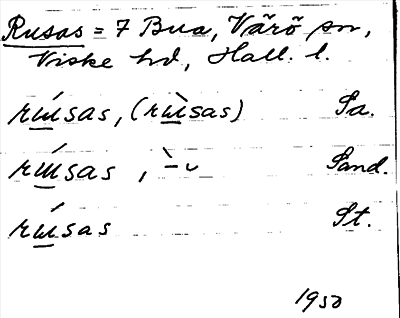 Rusas = 7 Bua, Värö sn,
Viske hd, Hall. l.
rúsas, (rùsas) Sa.
rúsas, `-ᴗ Sand.
rúsas St.
1950